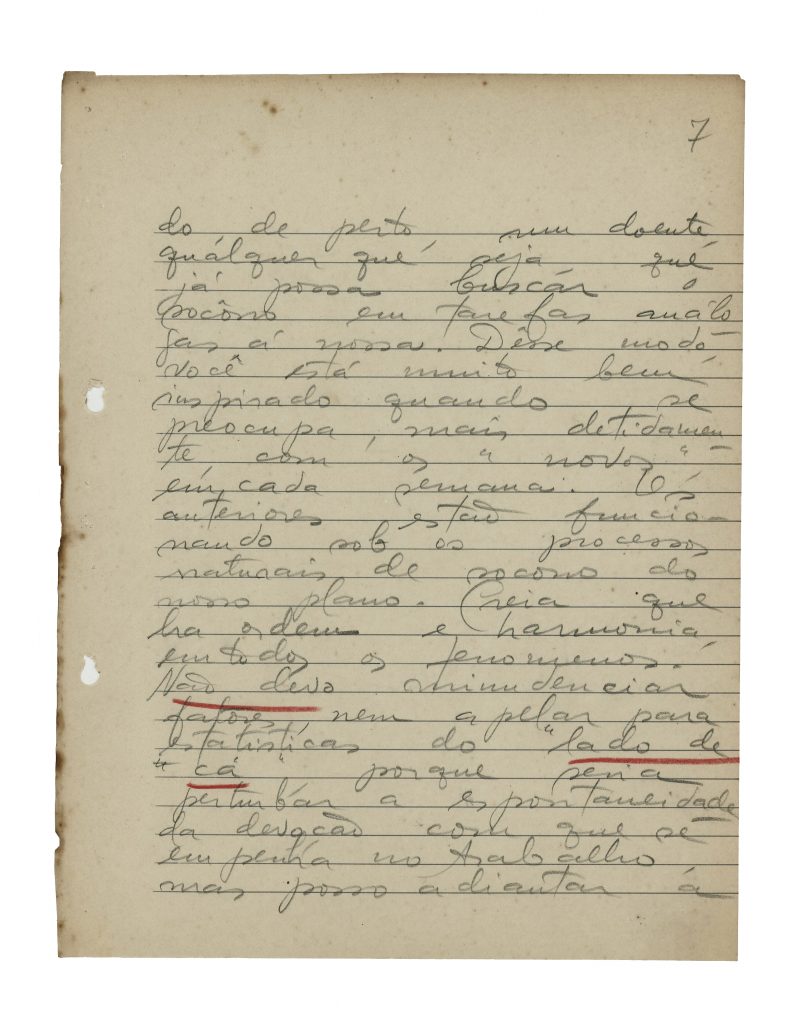 7
do de perto um doente
quálquer qué seja qué
já possa buscár o
socôrro em tarefas análo
gas á nossa. Dêsse modo
você está muito bem
inspirado quando se
preocupa, mais detidamen
te com os "novos"
em cada semana. Os
anteriores estão funcio-
nando sob os processos
naturais de socorro do
nosso plano. Creia que
ha ordem e harmonia
em todos os fenomenos.
Não devo minudenciar
fatores, nem apelar para
estatísticas do "lado de
cá" porque seria
perturbár a espontaneidade
da devoção com que se
empenha no trabalho
mas posso adiantar á